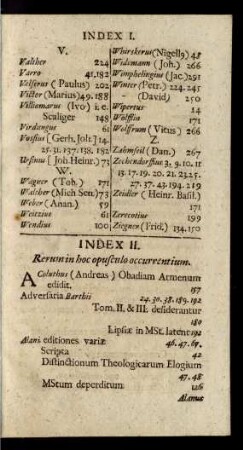 INDEX I.
V.
Valther 224
Varro 41.182
Velserus (Paulus) 202
Victor (Marius) 49.188
Villiomarus (Ivo) i.e.
Scaliger 148
Virdungus 61
Vossius [Gerh. Joh.] 14.
25.31.137.138.182
Ursinus [Joh. Heinr.] 71
W.
Wagner (Tob.) 171
Walther (Mich Sen.) 73
Weber (Anan.) 59
Weitzius 61
Wendius 100
Whirskerus (Nigell9) 45
Widemann (Joh.) 266
Wimphelingius (Jac.) 251
Winter (Petr.) 224.245
- - (David) 250
Wipertus 14
Wolfflin 171
Wolfrum (Vitus) 266
Z.
Zahmseil (Dan.) 267
Zechendorffius 3. 9. 10. 11
13. 17. 19. 20. 21. 23. 25.
27. 37. 43. 194. 219
Zeidler (Heinr. Basil.)
171
Zerecotius 199
Ziegner (Frid.) 134.150
INDEX II.
Rerum in hoc opusculo occurrentium.
A Coluthus (Andreas) Obadiam Armenum
edidit. 157
Adversaria Barthii 24. 30. 38. 189. 192
Tom. II. & III. desiderantur
180
Lipsiæ in MSt. latent 192
Alani editiones variæ 46. 47. 67.
Scripta 42
Distinctionum Theologicarum Elogium
47. 48
MStum deperditum 126
Alanus